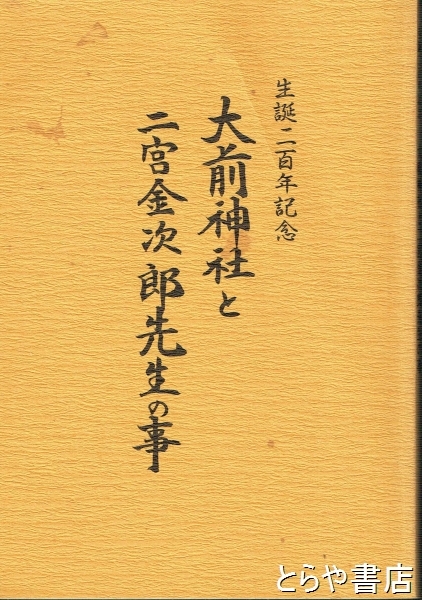 生誕二百年記念
大前神社と
二宮金次郎先生の事
とらや書店